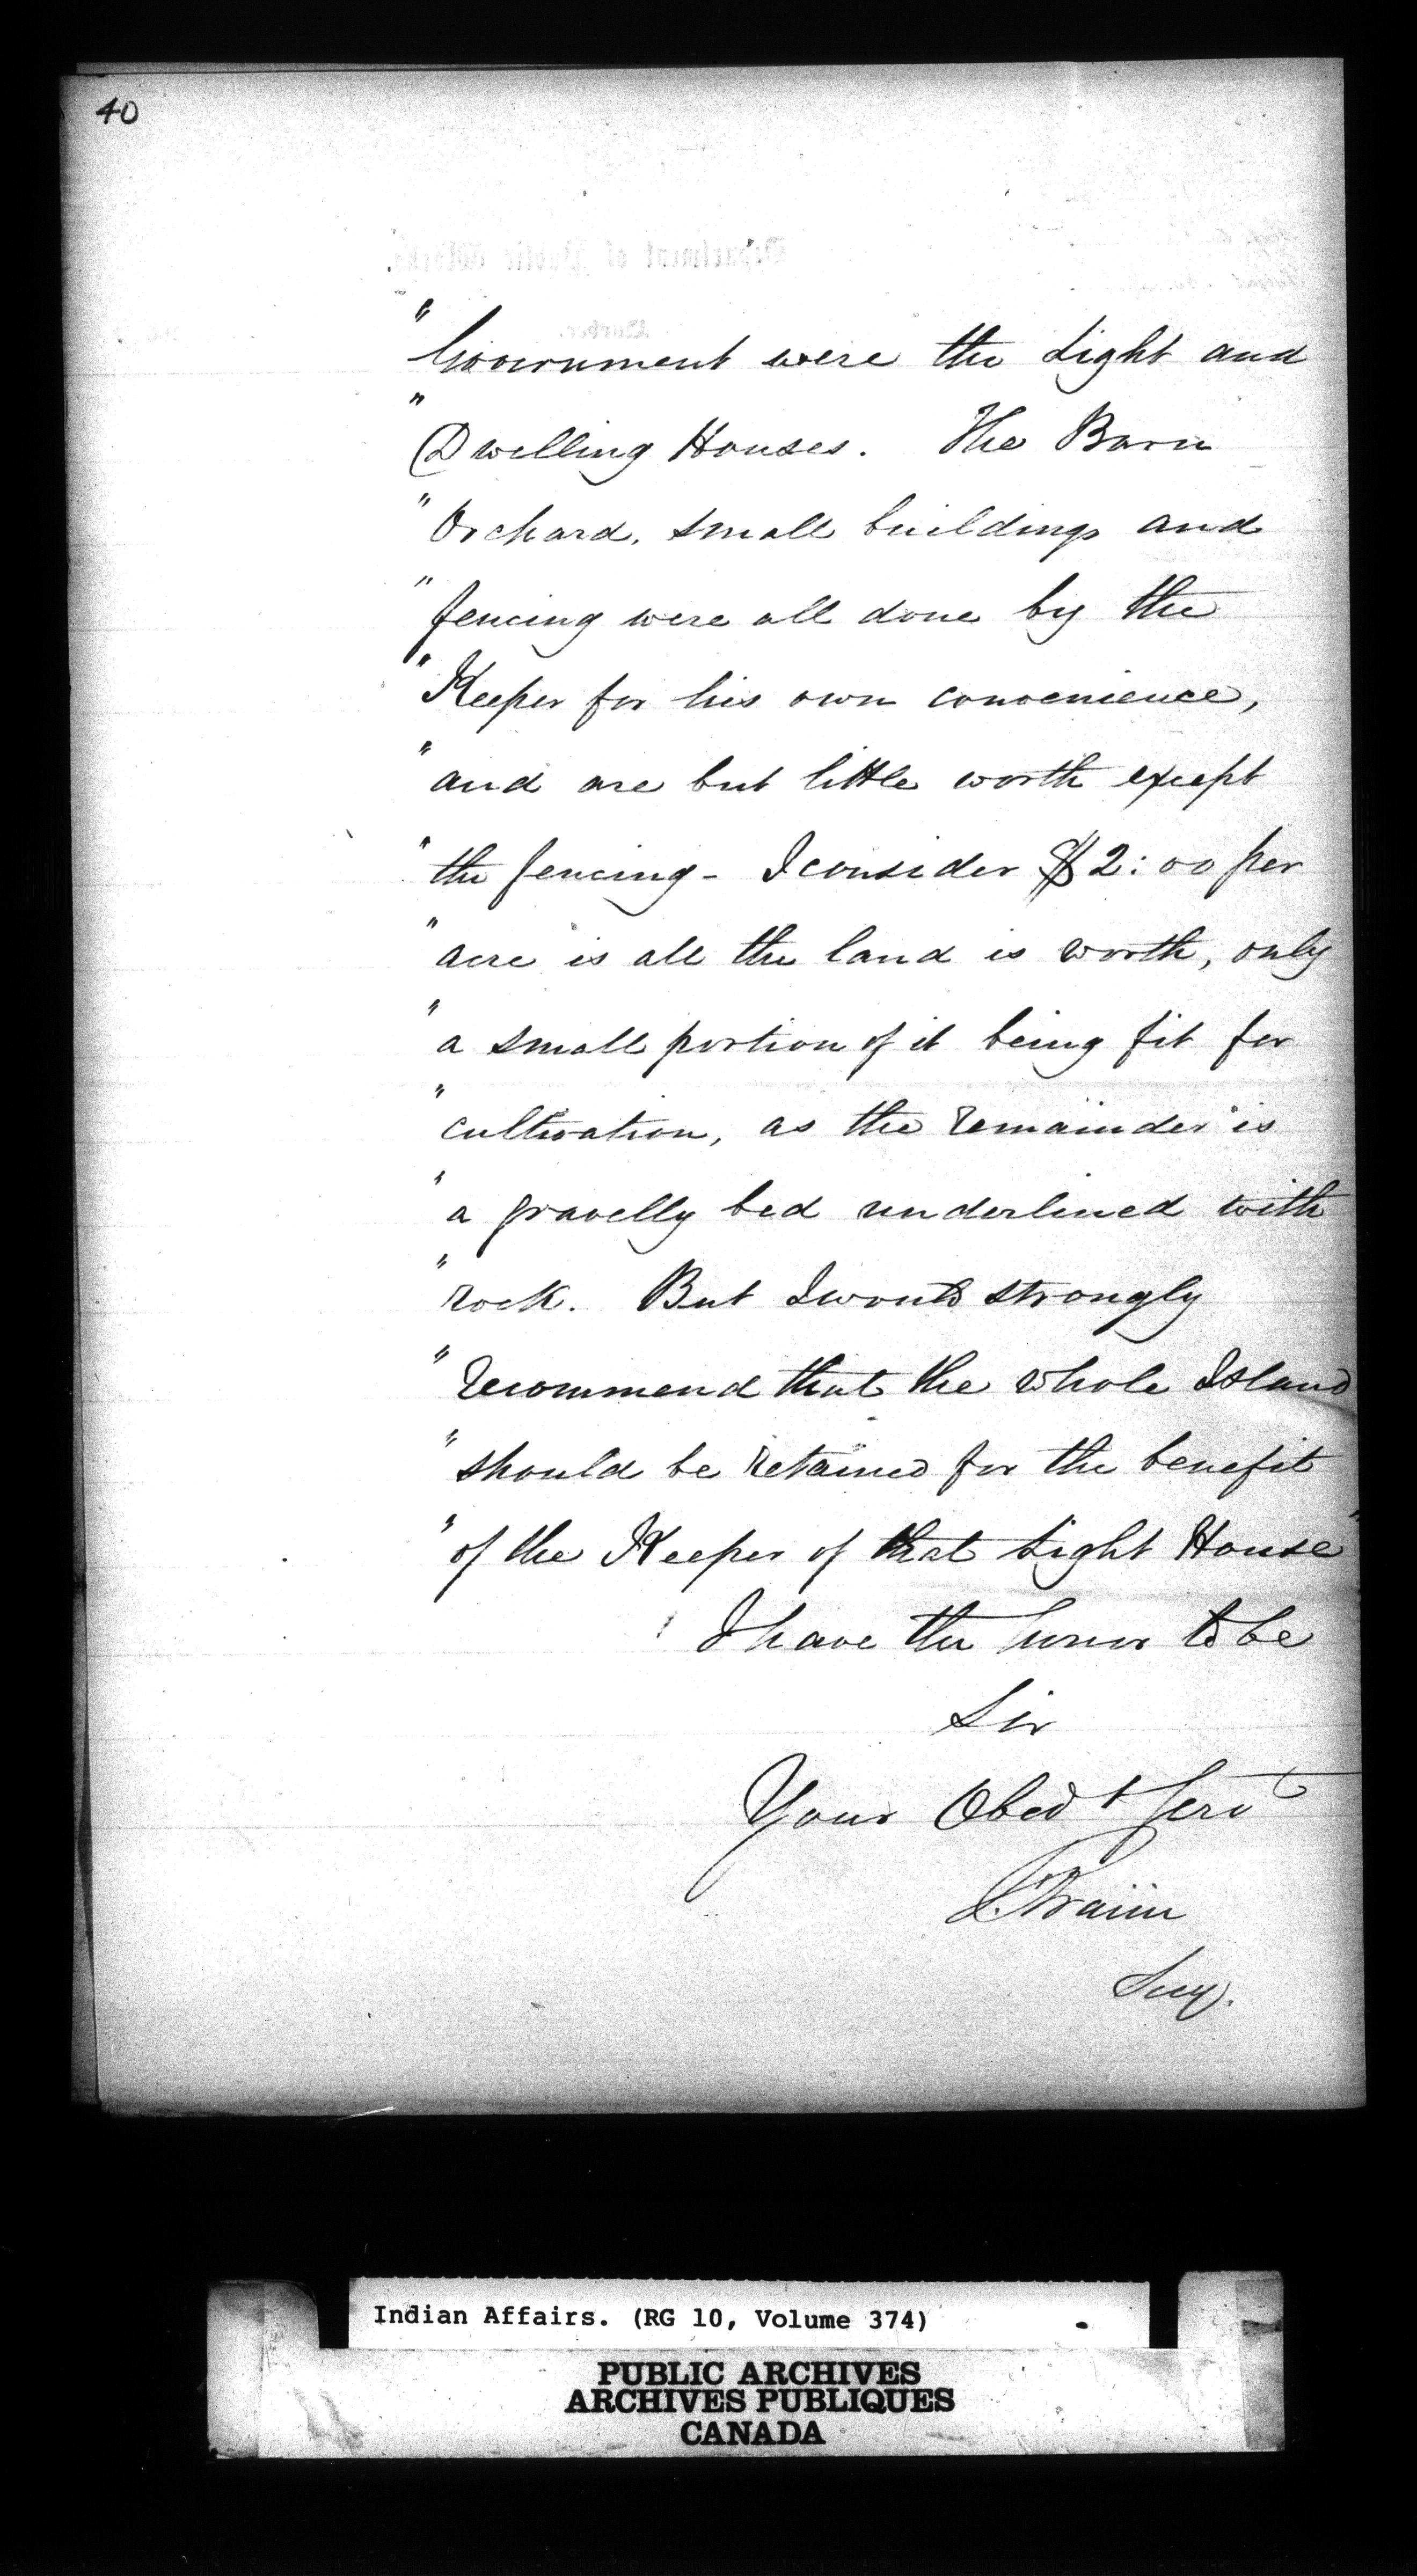 40
"Government were the Light and
"Dwelling Houses. The Barn
"Orchard, small buildings and
"fencing were all done by the
"Keeper for his own convenience,
"and are but little worth except
"the fencing - I consider $2:00 per
"acre is all the land is worth, only
"a small portion of it being fit for
"cultivation, as the remainder is
"a gravelly bed underlined with
"rock. But I would strongly
"recommend that the whole Island
"should be retained for the benefit
"of the Keeper of that Light House"
I have the honor to be
Sir
Your Obedt Servt
Secy.
Indian Affairs. (RG 10, Volume 374)
PUBLIC ARCHIVES
ARCHIVES PUBLIQUES
CANADA